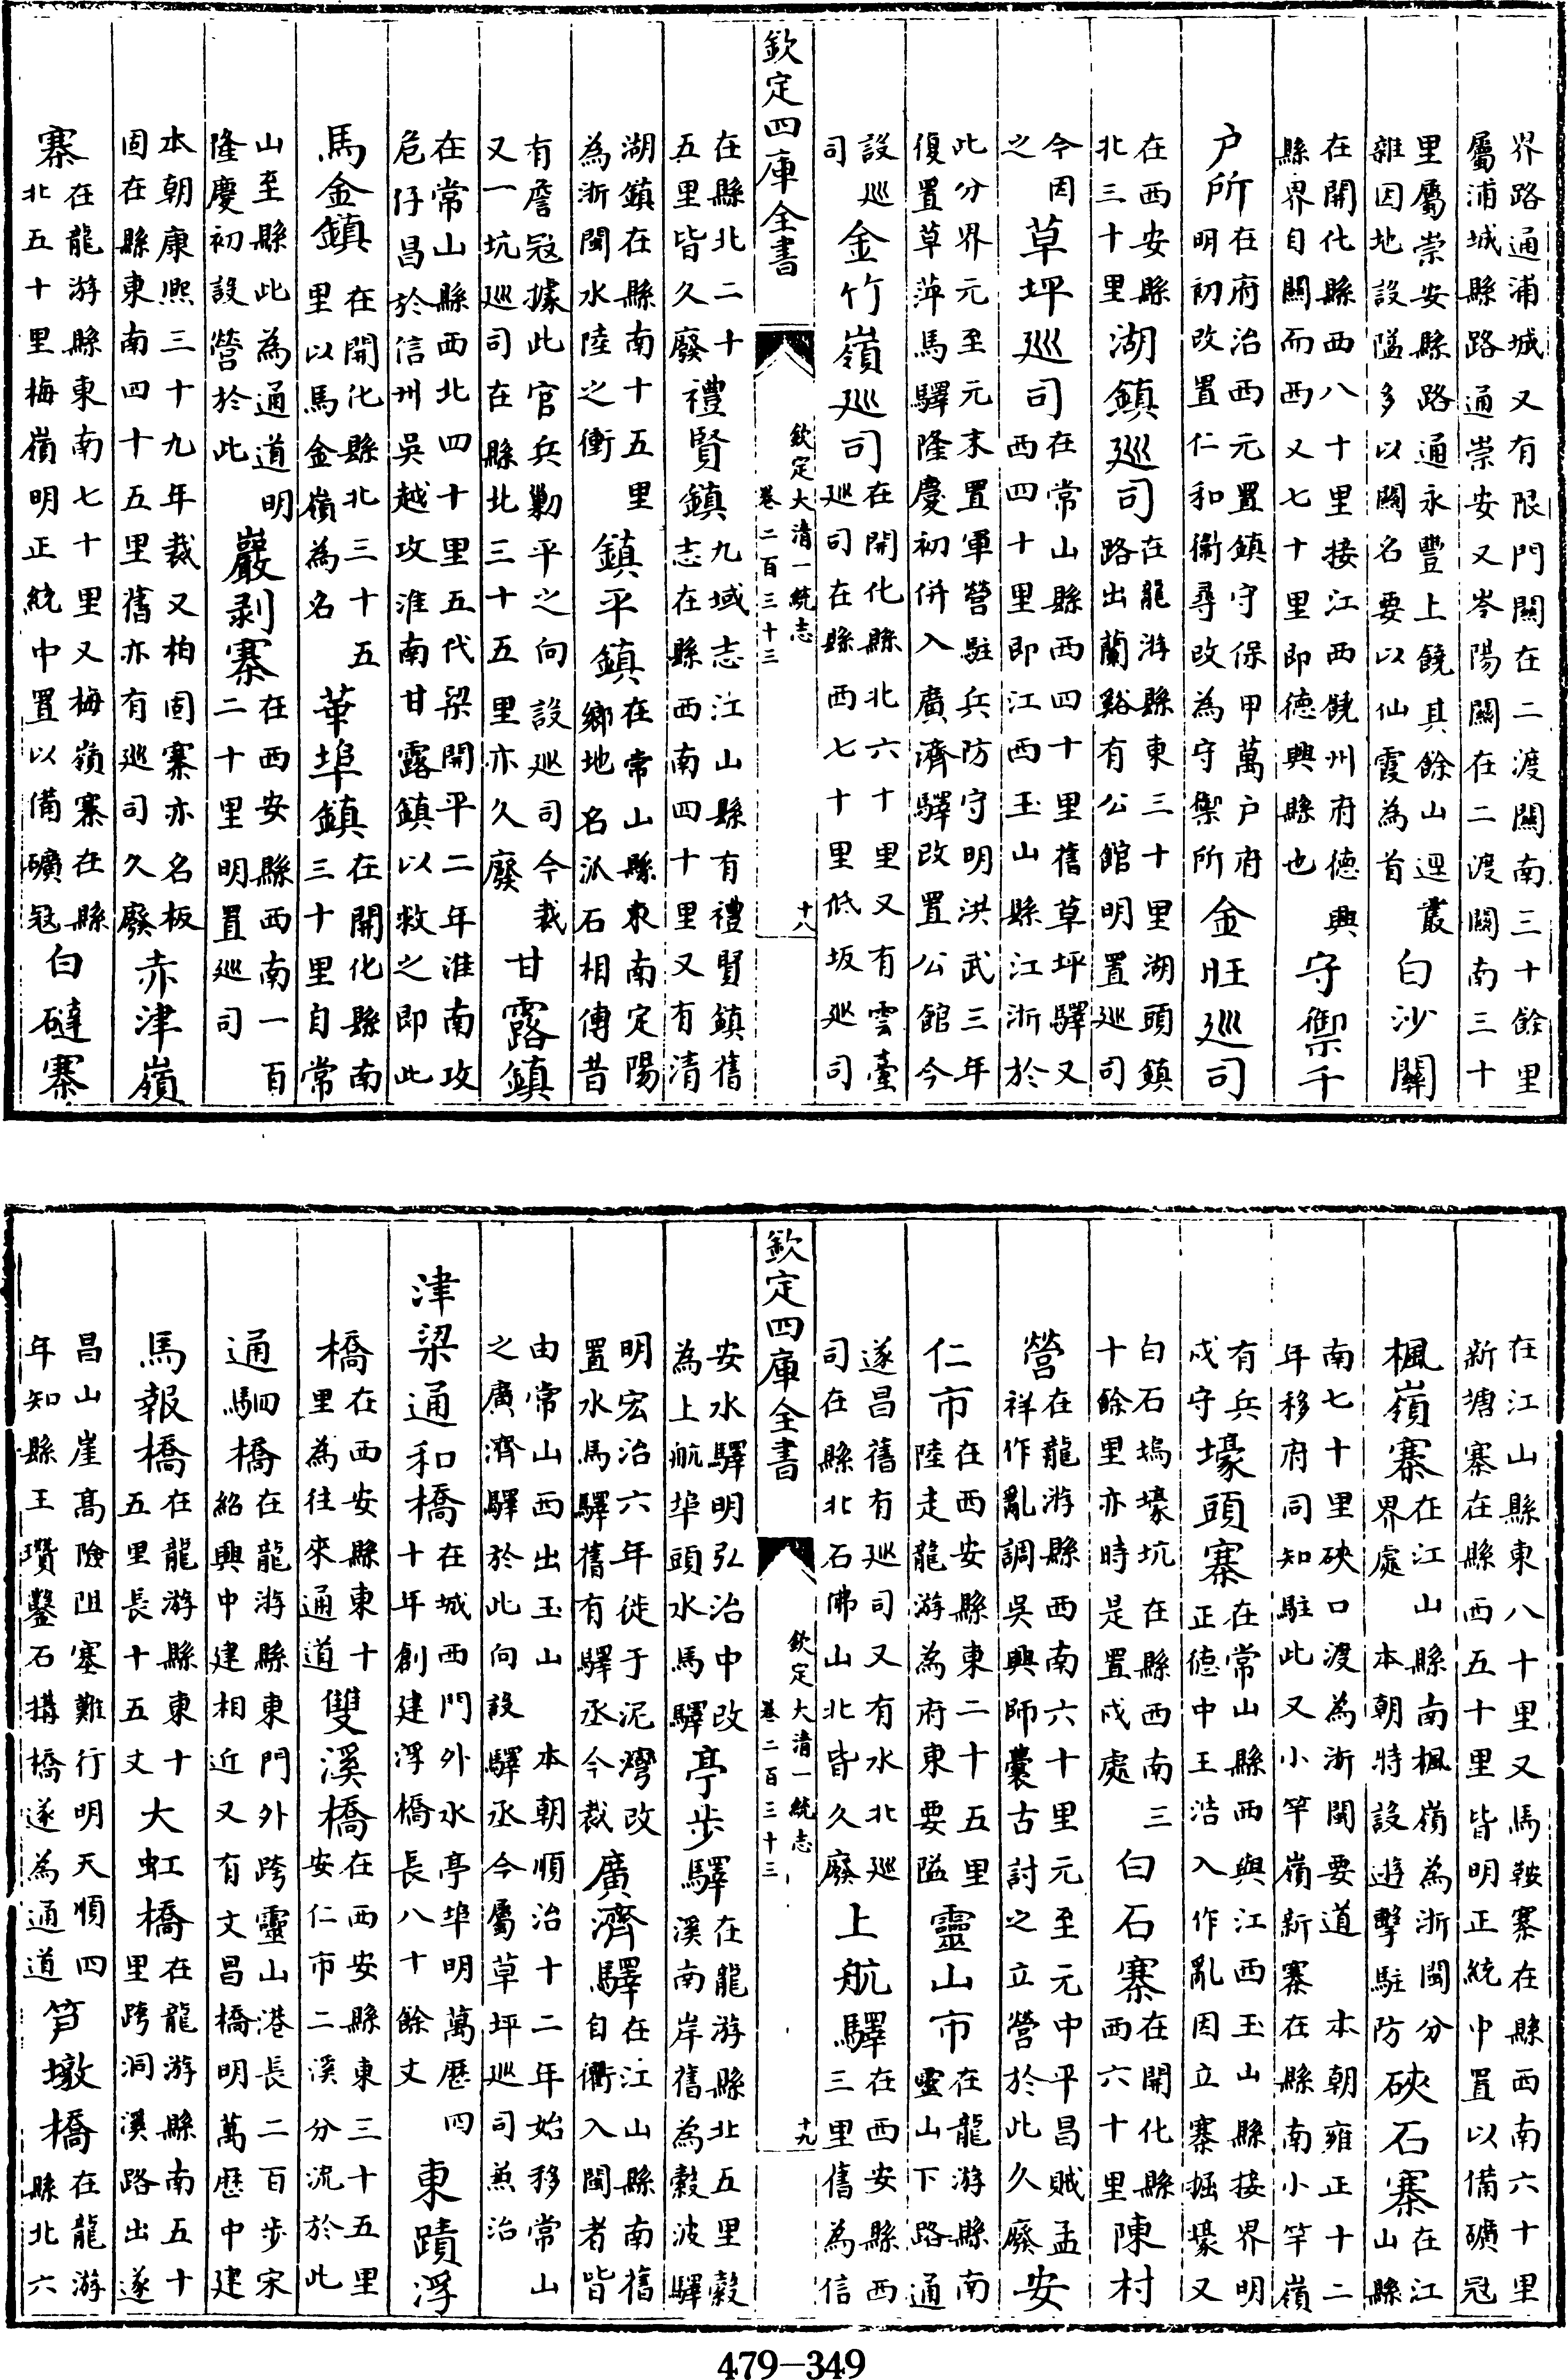 界路通浦城又有限門關在二渡關南三十餘里
屬浦城縣路通崇安又岑陽關在二渡關南三十
里屬崇安縣路通永豐上饒其餘山逕叢
雜因地設隘多以關名要以仙霞為首 白沙關
在開化縣西八十里接江西饒州府德興
縣界自關而西又七十里即德興縣也 守禦千
户所 在府治西元置鎮守保甲萬户府
明初改置仁和衞尋改為守禦所 金旺巡司
在西安縣
北三十里 湖鎮巡司 在龍游縣東三十里湖頭鎮
路出蘭谿有公館明置巡司
今因
之 草坪巡司 在常山縣西四十里舊草坪驛又
西四十里即江西玉山縣江浙於
此分界元至元末置軍營駐兵防守明洪武三年
復置草萍馬驛隆慶初併入廣濟驛改置公館今
設巡
司 金竹嶺巡司 在開化縣北六十里又有雲臺
巡司在縣西七十里低坂巡司
欽定四庫全書
欽定大清一統志
卷二百三十三
十八
在縣北二十
五里皆久廢 禮賢鎮 九域志江山縣有禮賢鎮舊
志在縣西南四十里又有清
湖鎮在縣南十五里
為浙閩水陸之衝 鎮平鎮 在常山縣東南定陽
鄉地名派石相傳昔
有詹寇據此官兵勦平之向設巡司今裁
又一坑巡司在縣北三十五里亦久廢 甘露鎮
在常山縣西北四十里五代梁開平二年淮南攻
危仔昌於信州吳越攻淮南甘露鎮以救之即此
馬金鎮 在開化縣北三十五
里以馬金嶺為名 華埠鎮 在開化縣南
三十里自常
山至縣此為通道明
隆慶初設營於此 巖剥寨 在西安縣西南一百
二十里明置巡司
本朝康熙三十九年裁又柏固寨亦名板
固在縣東南四十五里舊亦有巡司久廢 赤津嶺
寨 在龍游縣東南七十里又梅嶺寨在縣
北五十里梅嶺明正統中置以備礦寇 白磓寨
在江山縣東八十里又馬鞍寨在縣西南六十里
新塘寨在縣西五十里皆明正統中置以備礦寇
楓嶺寨 在江山縣南楓嶺為浙閩分
界處 本朝特設遊擊駐防 硤石寨 在江
山縣
南七十里硤口渡為浙閩要道 本朝雍正十二
年移府同知駐此又小竿嶺新寨在縣南小竿嶺
有兵
戍守 壕頭寨 在常山縣西與江西玉山縣接界明
正德中王浩入作亂因立寨掘壕又
白石塢壕坑在縣西南三
十餘里亦時是置戍處 白石寨 在開化縣
西六十里 陳村
營 在龍游縣西南六十里元至元中平昌賊孟
祥作亂調吳興師囊古討之立營於此久廢 安
仁市 在西安縣東二十五里
陸走龍游為府東要隘 靈山市 在龍游縣南
靈山下路通
遂昌舊有巡司又有水北巡
司在縣北石佛山北皆久廢 上航驛 在西安縣西
三里舊為信
欽定四庫全書
欽定大清一統志
卷二百三十三
十九
安水驛明弘治中改
為上航埠頭水馬驛 亭步驛 在龍游縣北五里穀
溪南岸舊為穀波驛
明宏治六年徙于泥灣改
置水馬驛舊有驛丞今裁 廣濟驛 在江山縣南舊
自衢入閩者皆
由常山西出玉山 本朝順治十二年始移常山
之廣濟驛於此向設驛丞今屬草坪巡司兼治
津梁 通和橋 在城西門外水亭埠明萬歷四
十年創建浮橋長八十餘丈 東蹟浮
橋 在西安縣東十
里為往來通道 雙溪橋 在西安縣東三十五里
安仁市二溪分流於此
通駟橋 在龍游縣東門外跨靈山港長二百步宋
紹興中建相近又有文昌橋明萬歷中建
馬報橋 在龍游縣東十
五里長十五丈 大虹橋 在龍游縣南五十
里跨洞溪路出遂
昌山崖高險阻塞難行明天順四
年知縣王瓚鑿石搆橋遂為通道 笋墩橋 在龍游
縣北六
479-349